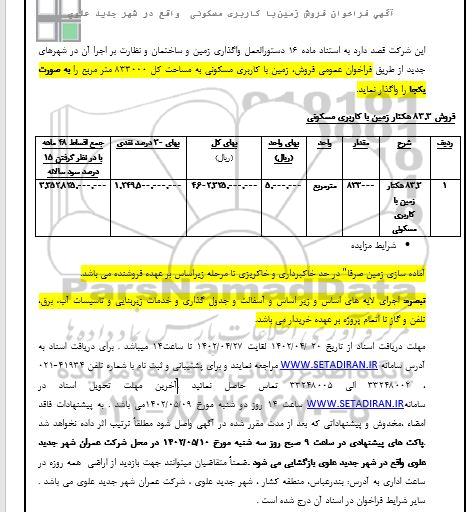 آگهی فراخوان فروش زمین با کاربری مسکونی واقع در شهر جدید علوی
این شرکت قصد دارد به استناد ماده ۱۶ دستورالعمل واگذاری زمین و ساختمان و نظارت بر اجرا آن در شهرهای
جدید از طریق فراخوان عمومی فروش، زمین با کاربری مسکونی به مساحت کل ۸۳۳۰۰۰ متر مربع را به صورت
یکجا را واگذار نماید.
فروش ۸۳.۳ هکتار زمین با کاربری مسکونی
ردیف شرح مقدار واحد بهای واحد (ریال) بهای کل (ریال) بهای ۳۰ درصد نقدی جمع اقساط ۴۸ ماهه با در نظر گرفتن ۱۵ درصد سود سالانه
۱ ۸۳.۳ هکتار زمین با کاربری مسکونی ۸۳۳۰۰۰ مترمربع
شرایط مزایده
آماده سازی زمین صرفا" در حد خاکبرداری و خاکریزی تا مرحله زیراساس بر عهده فروشنده می باشد.
تبصره: اجرای لایه های اساس و زیر اساس و آسفالت و جدول گذاری و خدمات زیربنایی و تاسیسات آب، برق،
تلفن و گاز تا اتمام پروژه بر عهده خریدار می باشد.
مهلت دریافت اسناد از تاریخ ۱۴۰۲/۰۴/۲۰ لغایت ۱۴۰۲/۰۴/۲۷ تا ساعت ۱۴ میباشد . برای دریافت اسناد به
آدرس سامانه WWW.SETADIRAN.IR مراجعه نمایند و برای پشتیبانی و ثبت نام با شماره تلفن ۴۱۹۳۴-۰۲۱
، ۳۳۲۴۸۰۰۲ الی ۳۳۲۴۸۰۰۵ تماس حاصل نمائید .آخرین مهلت تحویل اسناد در
سامانه WWW.SETADIRAN.IR ساعت ۱۴ روز دو شنبه مورخ ۱۴۰۲/۰۵/۰۹ می باشد . به پیشنهادات فاقد
امضاء ،مخدوش و پیشنهاداتی که بعد از مدت مقرر شده در آگهی واصل شود مطلقاً ترتیب اثر داده نخواهد شد
.پاکت های پیشنهادی در ساعت ۹ صبح روز سه شنبه مورخ ۱۴۰۲/۰۵/۱۰ در محل شرکت عمران شهر جدید
علوی واقع در شهر جدید علوی بازگشایی می شود .ضمناً متقاضیان میتوانند جهت بازدید از اراضی همه روزه در
ساعت اداری به آدرس: بندرعباس، منطقه کشار ، شهر جدید علوی ، شرکت عمران شهر جدید علوی می باشد .
سایر شرایط فراخوان در اسناد آن درج شده است .